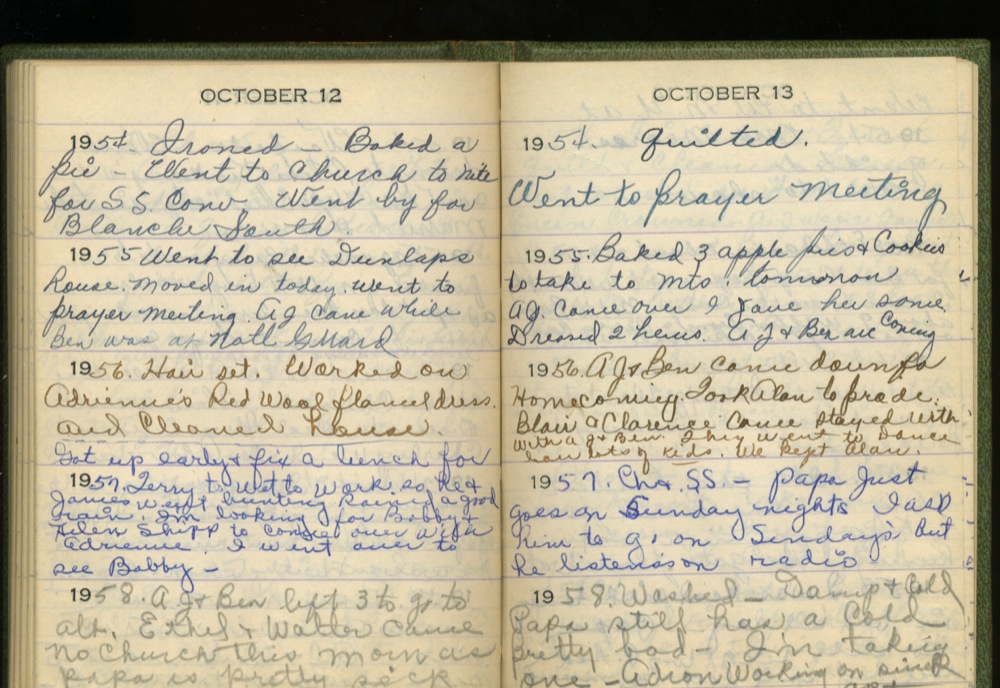 OCTOBER 12
1954. Ironed - Baked a
pie - Went to Church to nite
for S S. Conv. Went by for
Blanche South.
1955 Went to see Dunlaps
house. Moved in today. Went to
prayer meeting AJ came while
Ben was at Natl Guard
1956. Hair set. Worked on
Adrienne's Red Wool flannel dress.
and Cleaned house.
Got up early & fix a lunch for
1957. Terry to to work so he &
James went hunting Rained a good
rain. I'm looking for Bobby &
Helen Shipp to come over with
Adrienne. I went over to
see Bobby -
1958. AJ & Ben left 3 to go to
alt. Ethel & Walter came
No Church this morn as
papa is pretty sick
OCTOBER 13
1954. Quilted.
Went to prayer meeting
1955. Baked 3 apple pies & Cookies
to take to mts. tomorrow
AJ. Came over I gave her some
Dressed 2 hens. AJ & Ben are Coming
1956. AJ & Ben came down for
Homecoming. Took Alan to prade.
Blair & Clarence Came Stayed with
with AJ & Ben. They went to Dance
lots of kids. We kept Alan.
1957. Ch & SS - Papa Just
goes on Sunday nights I ask
him to go on Sunday's but
he listens on radio
1958. Washed - Damp & Cold
Papa still has a Cold
pretty bad - I'm taking
one - Adron Working on sink